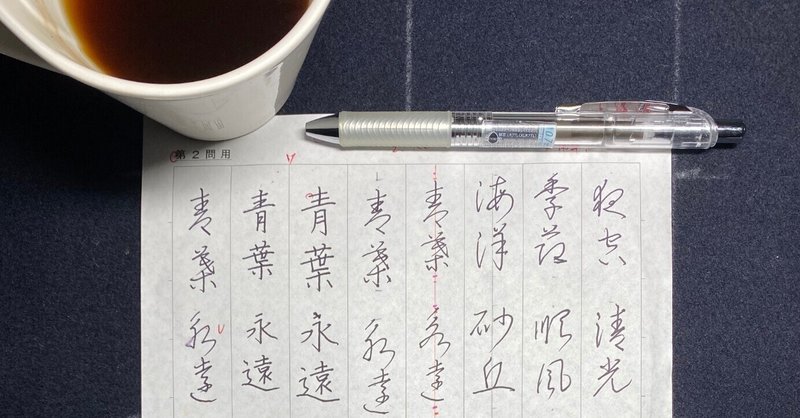 第2問用
夜空 清光
季節 順風
海洋 砂丘
青葉 永遠
青葉 永遠
青葉 永遠
青葉 永遠
青葉 永遠